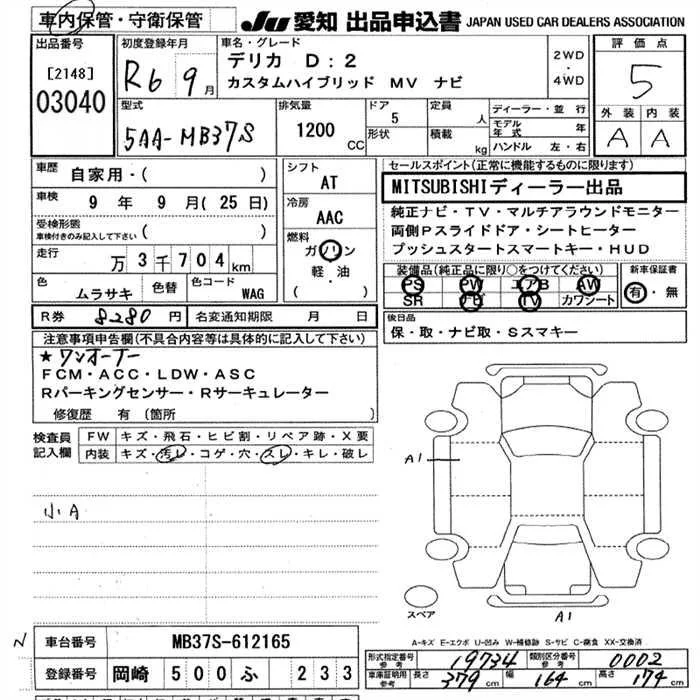 車内保管・守衛保管
JU 愛知 出品申込書 JAPAN USED CAR DEALERS ASSOCIATION
出品番号
[2148]
03040
初度登録年月
R6 9月
車名・グレード
デリカ D:2
カスタムハイブリッド MV ナビ
2WD
・
4WD
評価点
5
外装 内装
A A
型式
5AA-MB37S
排気量
1200 CC
ドア
5
形状
定員
人
積載
kg
ディーラー・並行
モデル年式 年
ハンドル 左・右
車歴
自家用・( )
車検
9 年 9 月(25日)
受検形態
車検付きのみ記入して下さい ( )
走行
万 3 千 704 km
色
ムラサキ
色替
色コード
WAG
シフト
AT
冷房
AAC
燃料
ガソリン
軽・油
( )
セールスポイント(正常に機能するものに限ります)
MITSUBISHIディーラー出品
純正ナビ・TV・マルチアラウンドモニター
両側Pスライドドア・シートヒーター
プッシュスタートスマートキー・HUD
装備品(純正品に限り○をつけてください)
PS PW エアB AW
SR ナビ TV カワシート
新車保証書
有・無
R券 8280 円
名変通知期限 月 日
後日品
保・取・ナビ取・Sスマキー
注意事項申告欄(不具合内容等は具体的に記入して下さい)
★ワンオーナー
FCM・ACC・LDW・ASC
Rパーキングセンサー・Rサーキュレーター
修復歴 有(箇所
検査員記入欄
FW キズ・飛石・ヒビ割・リペア跡・X要
内装 キズ・汚レ・コゲ・穴・スレ・キレ・破レ
小A
A1
スペア
A1
A-キズ E-エクボ U-凹み W-補修跡 S-サビ C-腐食 XX-交換済
N
車台番号 MB37S-612165
登録番号 岡崎 500 ふ 233
形式指定番号 参考 19734
類別区分番号 参考 0002
車庫証明用 参考 長さ 379 cm 幅 164 cm 高さ 174 cm